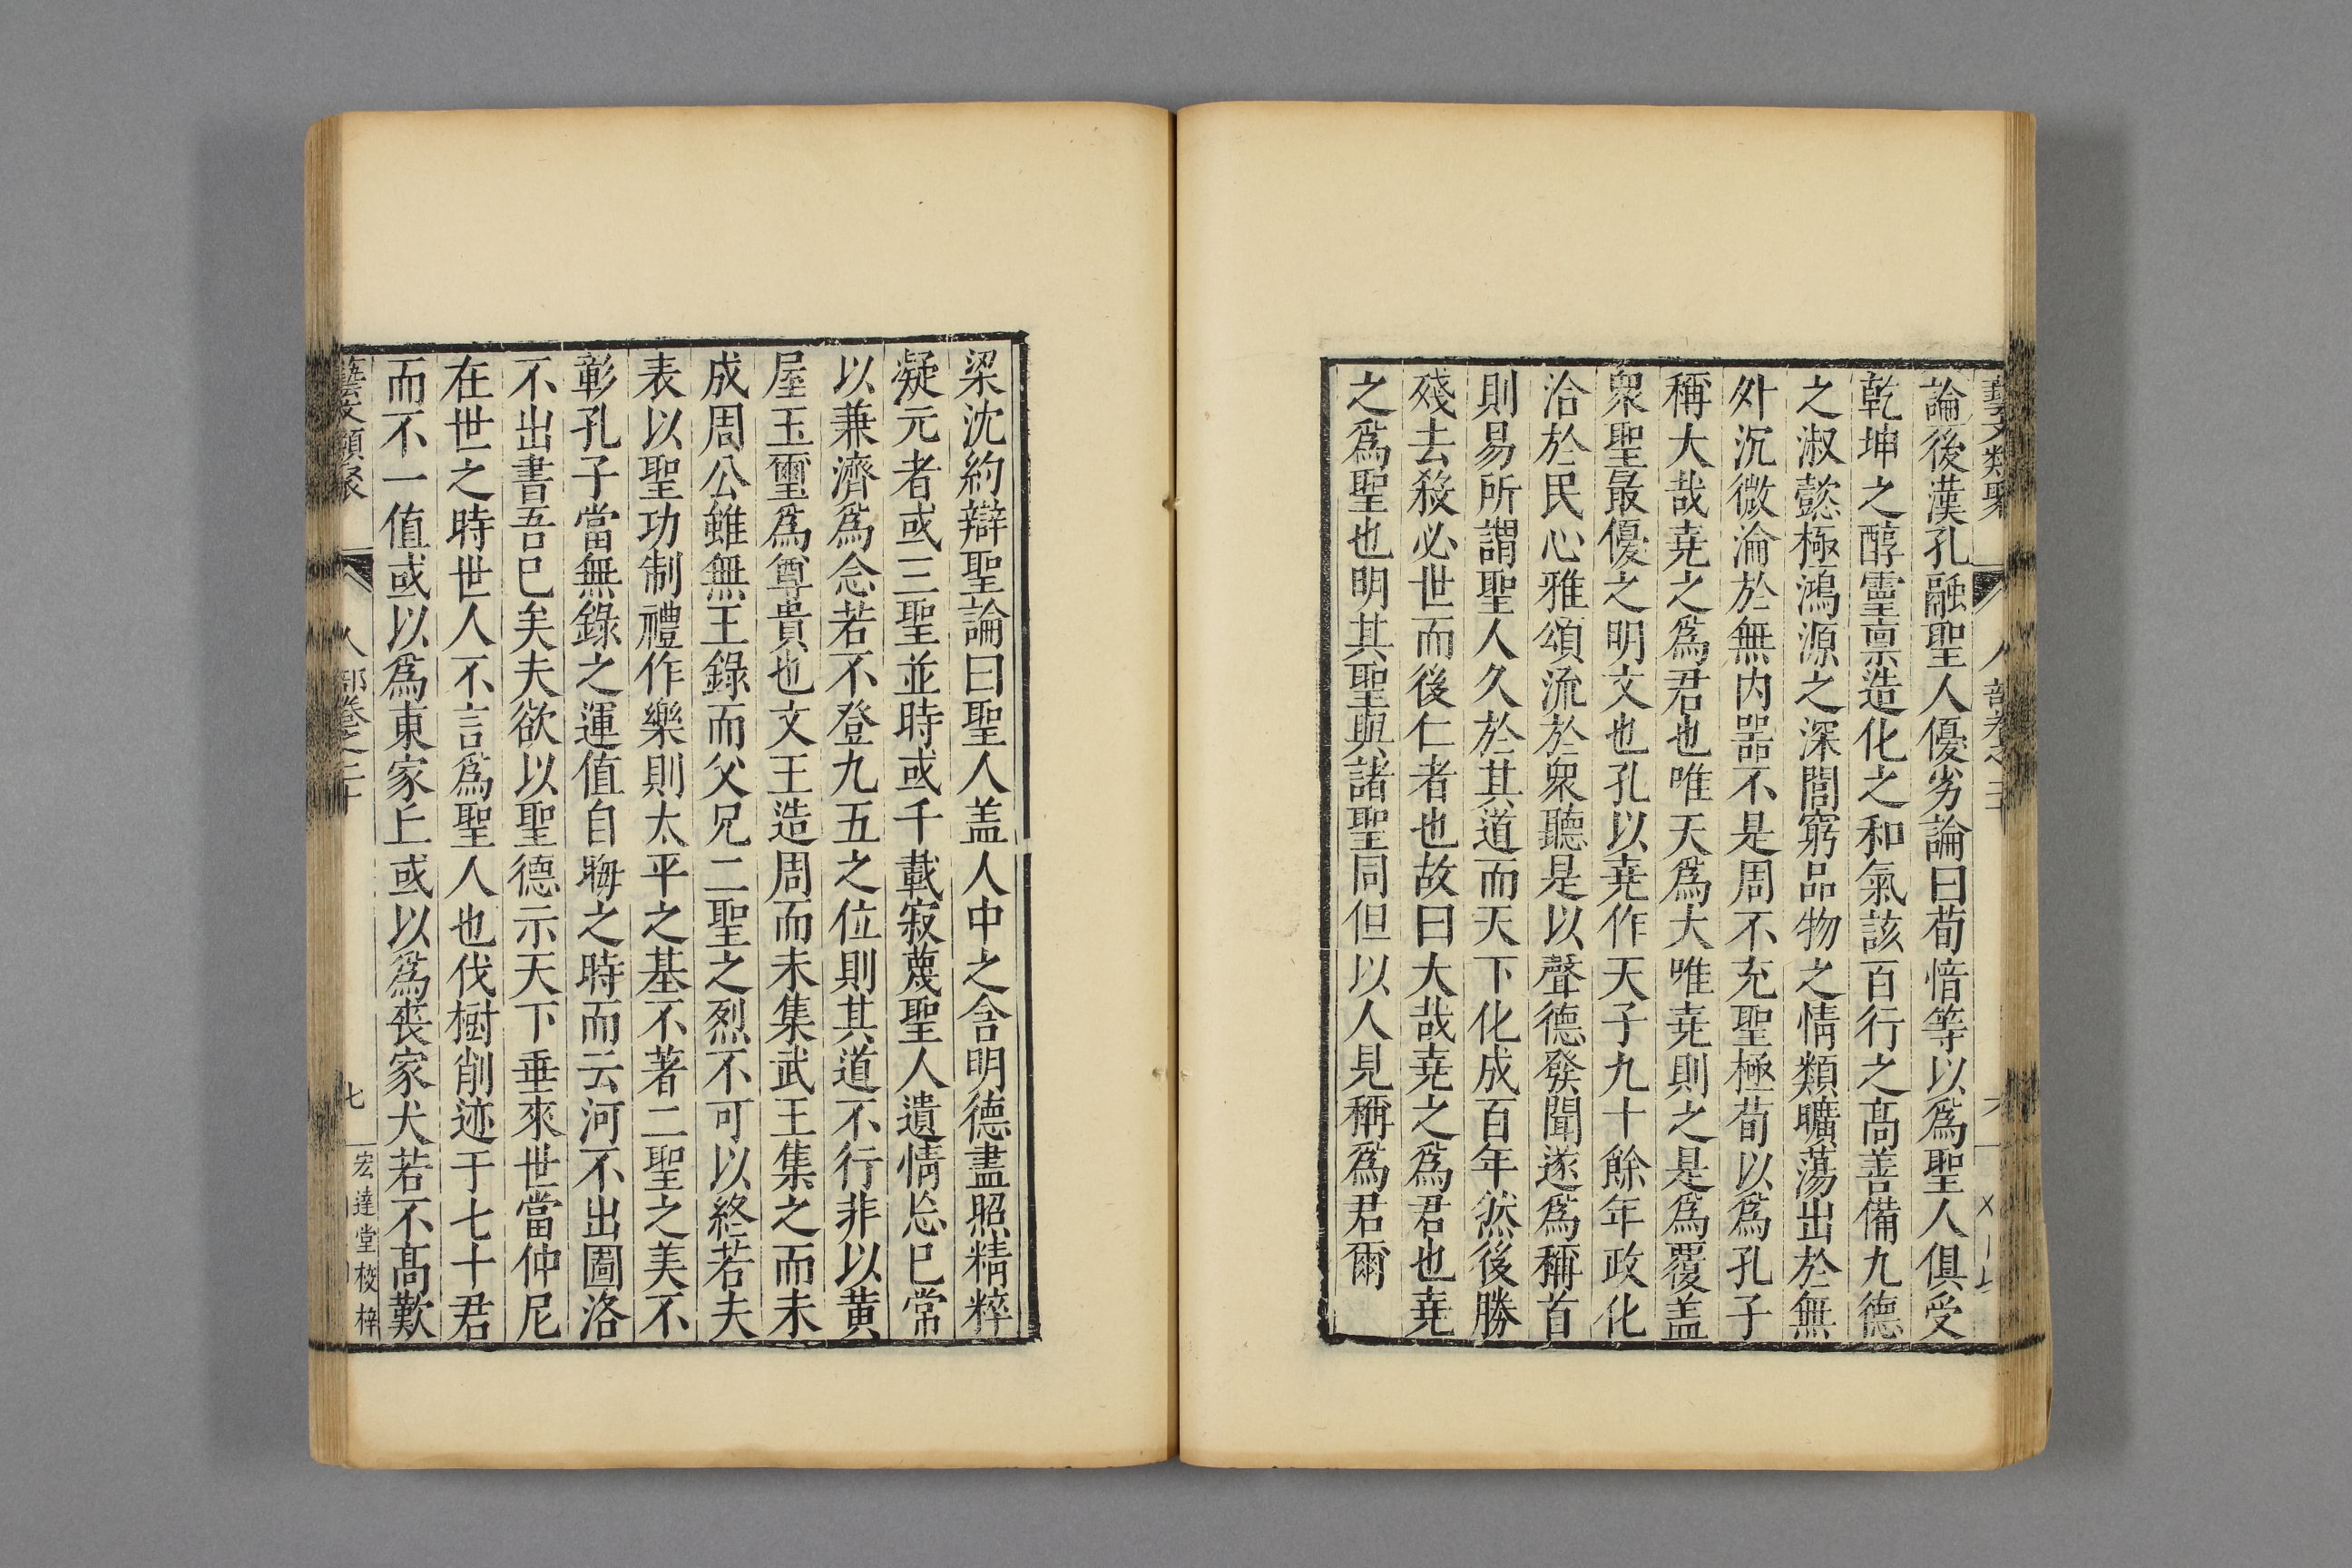 論後漢孔融聖人優劣論曰荀愔等以爲聖人俱受
乾坤之醇靈禀造化之和氣該百行之髙善備九德
之淑懿極鴻源之深閭窮品物之情類曠蕩出於無
外沉微淪於無内噐不是周不充聖極荀以爲孔子
稱大哉尭之爲君也唯天爲大唯尭則之是爲覆盖
衆聖最優之明文也孔以尭作天子九十餘年政化
洽於民心雅頌流於衆聽是以聲德發聞遂爲稱首
則易所謂聖人久於其道而天下化成百年然後勝
殘去殺必世而後仁者也故曰大哉尭之爲君也尭
之爲聖也明其聖與諸聖同但以人見稱爲君爾
梁沈約辯聖論曰聖人盖人中之含明德盡照精粹
凝元者或三聖並時或千載寂蔑聖人遺情忘巳常
以兼濟爲念若不登九五之位則其道不行非以黄
屋玉璽爲尊貴也文王造周而未集武王集之而未
成周公雖無王錄而父兄二聖之烈不可以終若夫
表以聖功制禮作樂則太平之基不著二聖之美不
彰孔子當無錄之運值自晦之時而云河不出圖洛
不出書吾巳矣夫欲以聖德示天下垂來世當仲尼
在世之時世人不言爲聖人也伐樹削迹于七十君
而不一值或以爲東家丘或以爲喪家犬若不髙歎
藝文類聚 人部卷之二十 七 宏達堂校梓